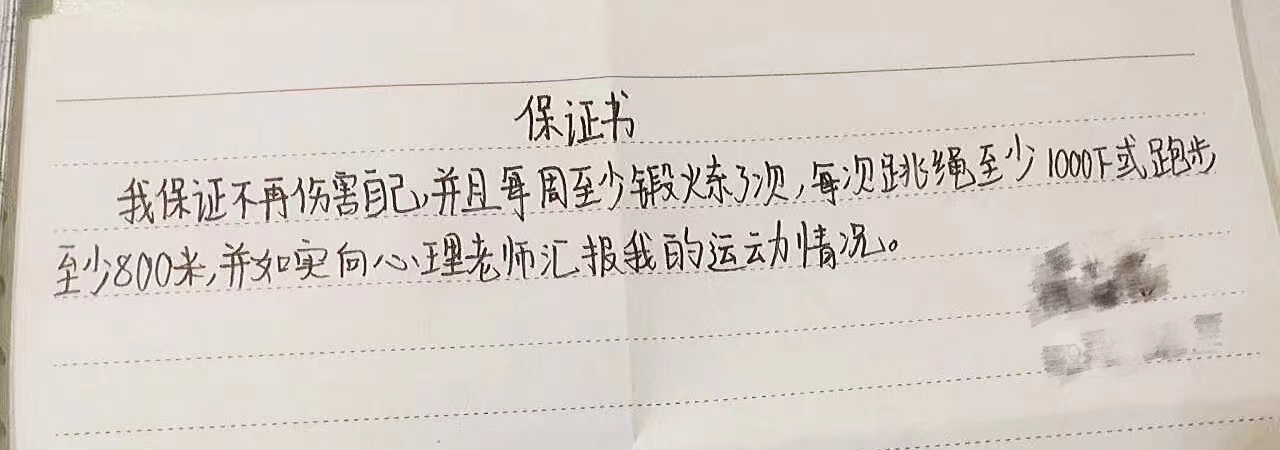 保证书
我保证不再伤害自己,并且每周至少锻炼3次,每次跳绳至少1000下或跑步
至少800米,并如实向心理老师汇报我的运动情况。